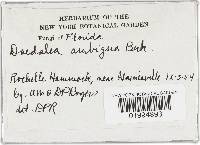 HERBARIUM OF THE
NEW YORK BOTANICAL GARDEN
Fungi of Florida
Daedalea ambigua Berk.
Rochelle Hammock, near Gainesville
by. AM & DP Rogers
det. DPR